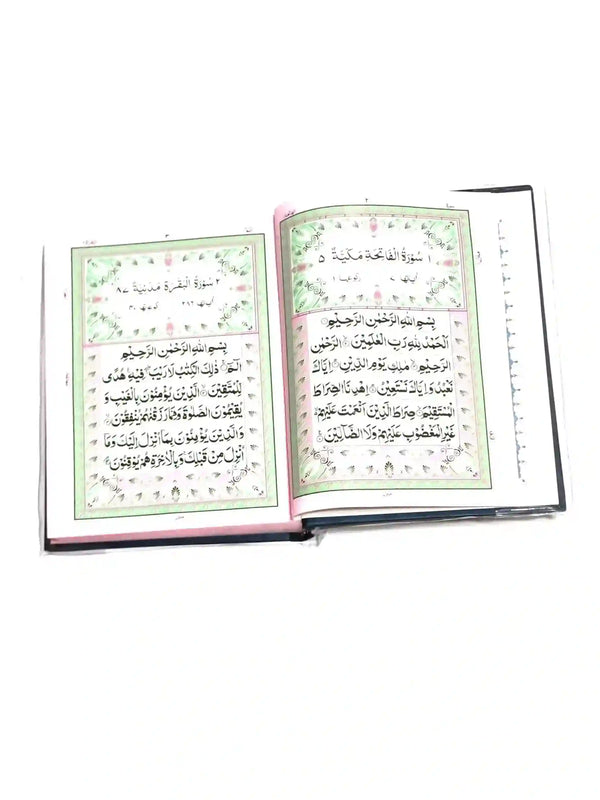 ٢
١ سُوْرَةُ الْفَاتِحَةِ مَكِّيَّةٌ ٥
اٰیاتها ٧ رکوعها ١
بِسْمِ اللهِ الرَّحْمٰنِ الرَّحِيْمِ
اَلْحَمْدُ لِلّٰهِ رَبِّ الْعٰلَمِيْنَ الرَّحْمٰنِ
الرَّحِيْمِ مٰلِكِ يَوْمِ الدِّيْنِ اِيَّاكَ
نَعْبُدُ وَ اِيَّاكَ نَسْتَعِيْنُ اِهْدِنَا الصِّرَاطَ
الْمُسْتَقِيْمَ صِرَاطَ الَّذِيْنَ اَنْعَمْتَ عَلَيْهِمْ
غَيْرِ الْمَغْضُوْبِ عَلَيْهِمْ وَلَا الضَّآلِّيْنَ
٣
٢ سُوْرَةُ الْبَقَرَةِ مَدَنِيَّةٌ ٨٧
اٰیاتها ٢٨٦ رکوعاتها ٤٠
بِسْمِ اللهِ الرَّحْمٰنِ الرَّحِيْمِ
الٓمّٓ ذٰلِكَ الْكِتٰبُ لَا رَيْبَ فِيْهِ هُدًى
لِّلْمُتَّقِيْنَ الَّذِيْنَ يُؤْمِنُوْنَ بِالْغَيْبِ وَ
يُقِيْمُوْنَ الصَّلٰوةَ وَمِمَّا رَزَقْنٰهُمْ يُنْفِقُوْنَ
وَالَّذِيْنَ يُؤْمِنُوْنَ بِمَآ اُنْزِلَ اِلَيْكَ وَمَآ
اُنْزِلَ مِنْ قَبْلِكَ وَبِالْاٰخِرَةِ هُمْ يُوْقِنُوْنَ